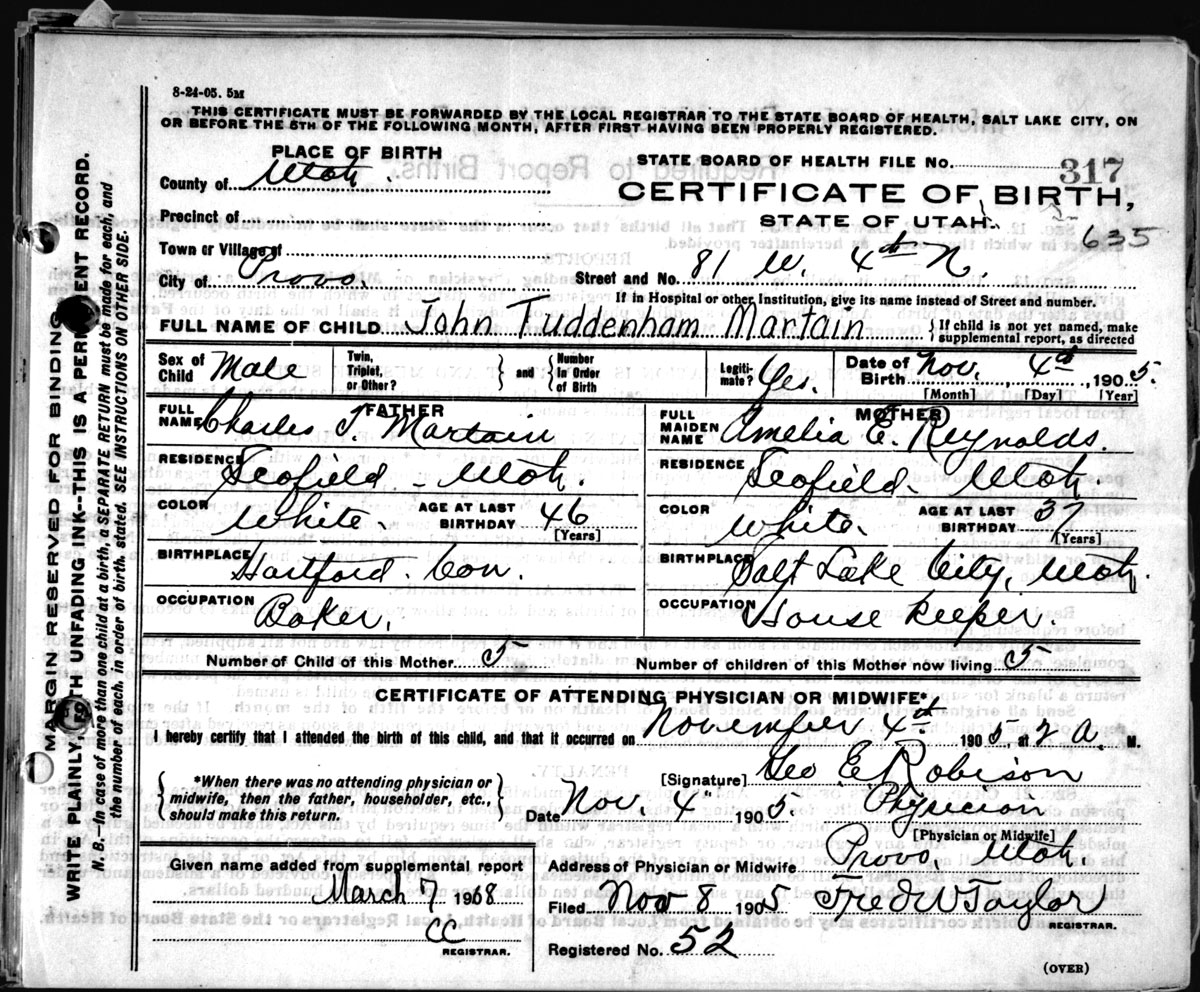 8-24-05. 5M
THIS CERTIFICATE MUST BE FORWARDED BY THE LOCAL REGISTRAR TO THE STATE BOARD OF HEALTH, SALT LAKE CITY, ON
OR BEFORE THE 5TH OF THE FOLLOWING MONTH, AFTER FIRST HAVING BEEN PROPERLY REGISTERED.
PLACE OF BIRTH
STATE BOARD OF HEALTH FILE NO. 317
County of Utah.
CERTIFICATE OF BIRTH,
Precinct of
STATE OF UTAH.
635
Town or Village of
City of Provo.
Street and No. 81 W. 4th N.
If in Hospital or other Institution, give its name instead of Street and number.
FULL NAME OF CHILD John Tuddenham Martain { If child is not yet named, make
supplemental report, as directed
Sex of Child Male
Twin, Triplet, or Other? } and { Number In Order of Birth
Legiti-mate? Yes.
Date of Birth Nov. 4th, 1905.
[Month] [Day] [Year]
FATHER
FULL NAME Charles T. Martain
RESIDENCE Scofield - Utah.
COLOR White. AGE AT LAST BIRTHDAY 46
[Years]
BIRTHPLACE Hartford. Con.
OCCUPATION Baker.
MOTHER
FULL MAIDEN NAME Amelia E. Reynolds.
RESIDENCE Scofield. Utah.
COLOR White. AGE AT LAST BIRTHDAY 37
[Years]
BIRTHPLACE Salt Lake City, Utah.
OCCUPATION House Keeper.
Number of Child of this Mother 5 Number of children of this Mother now living 5
CERTIFICATE OF ATTENDING PHYSICIAN OR MIDWIFE*
I hereby certify that I attended the birth of this child, and that it occurred on November 4th 1905, at 2 A. M.
{ *When there was no attending physician or
midwife, then the father, householder, etc.,
should make this return. }
[Signature] Geo E Robison
Date Nov. 4" 1905. Physician
[Physician or Midwife]
Given name added from supplemental report
March 7 1968
CC
REGISTRAR.
Address of Physician or Midwife Provo, Utah
Filed Nov 8 1905 Fred W Taylor
REGISTRAR.
Registered No. 52
(OVER)
MARGIN RESERVED FOR BINDING
WRITE PLAINLY, WITH UNFADING INK--THIS IS A PERMANENT RECORD.
N. B.--In case of more than one child at a birth, a SEPARATE RETURN must be made for each, and
the number of each, in order of birth, stated. SEE INSTRUCTIONS ON OTHER SIDE.